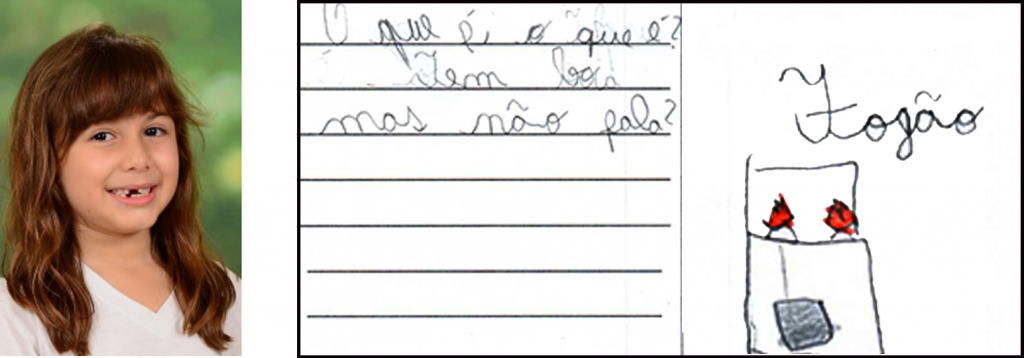 O que é, o que é?
Tem
mas não fala?
Fogão